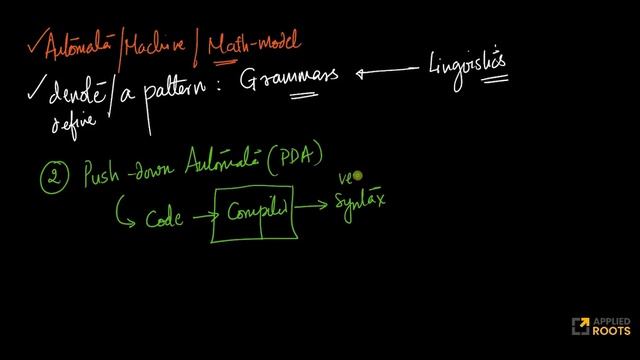 ✓ Automata / Machine / Math-model
✓ denote / a pattern : Grammars ← Linguistics
define
② Push-down Automata (PDA)
ve
↳ Code → Compiler → Syntax
APPLIED
ROOTS